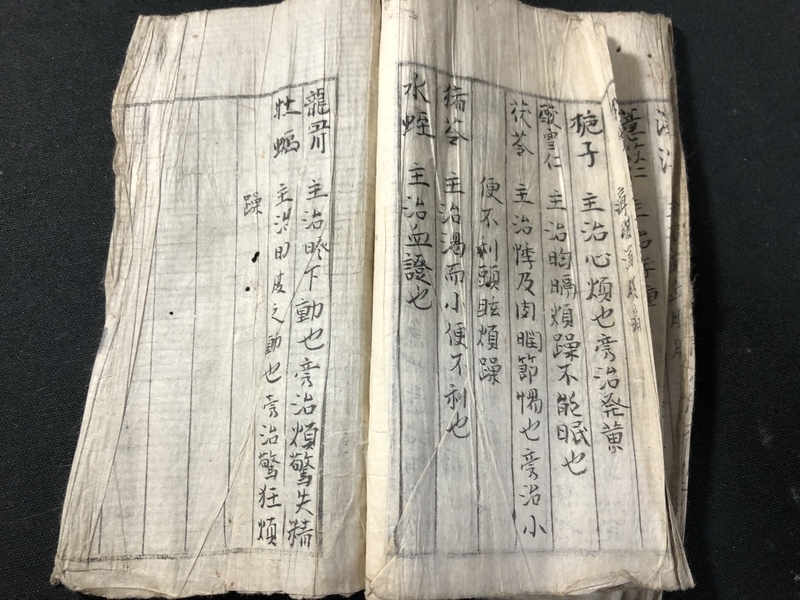 薏苡仁 主治浮腫
梔子 主治心煩也旁治発黄
酸棗仁 主治胸膈煩躁不能眠也
茯苓 主治悸及肉瞤節惕也旁治小
便不利頭眩煩躁
猪苓 主治渇而小便不利也
水蛭 主治血證也
龍骨 主治臍下動也旁治煩驚失精
牡蠣 主治胸腹之動也旁治驚狂煩
躁